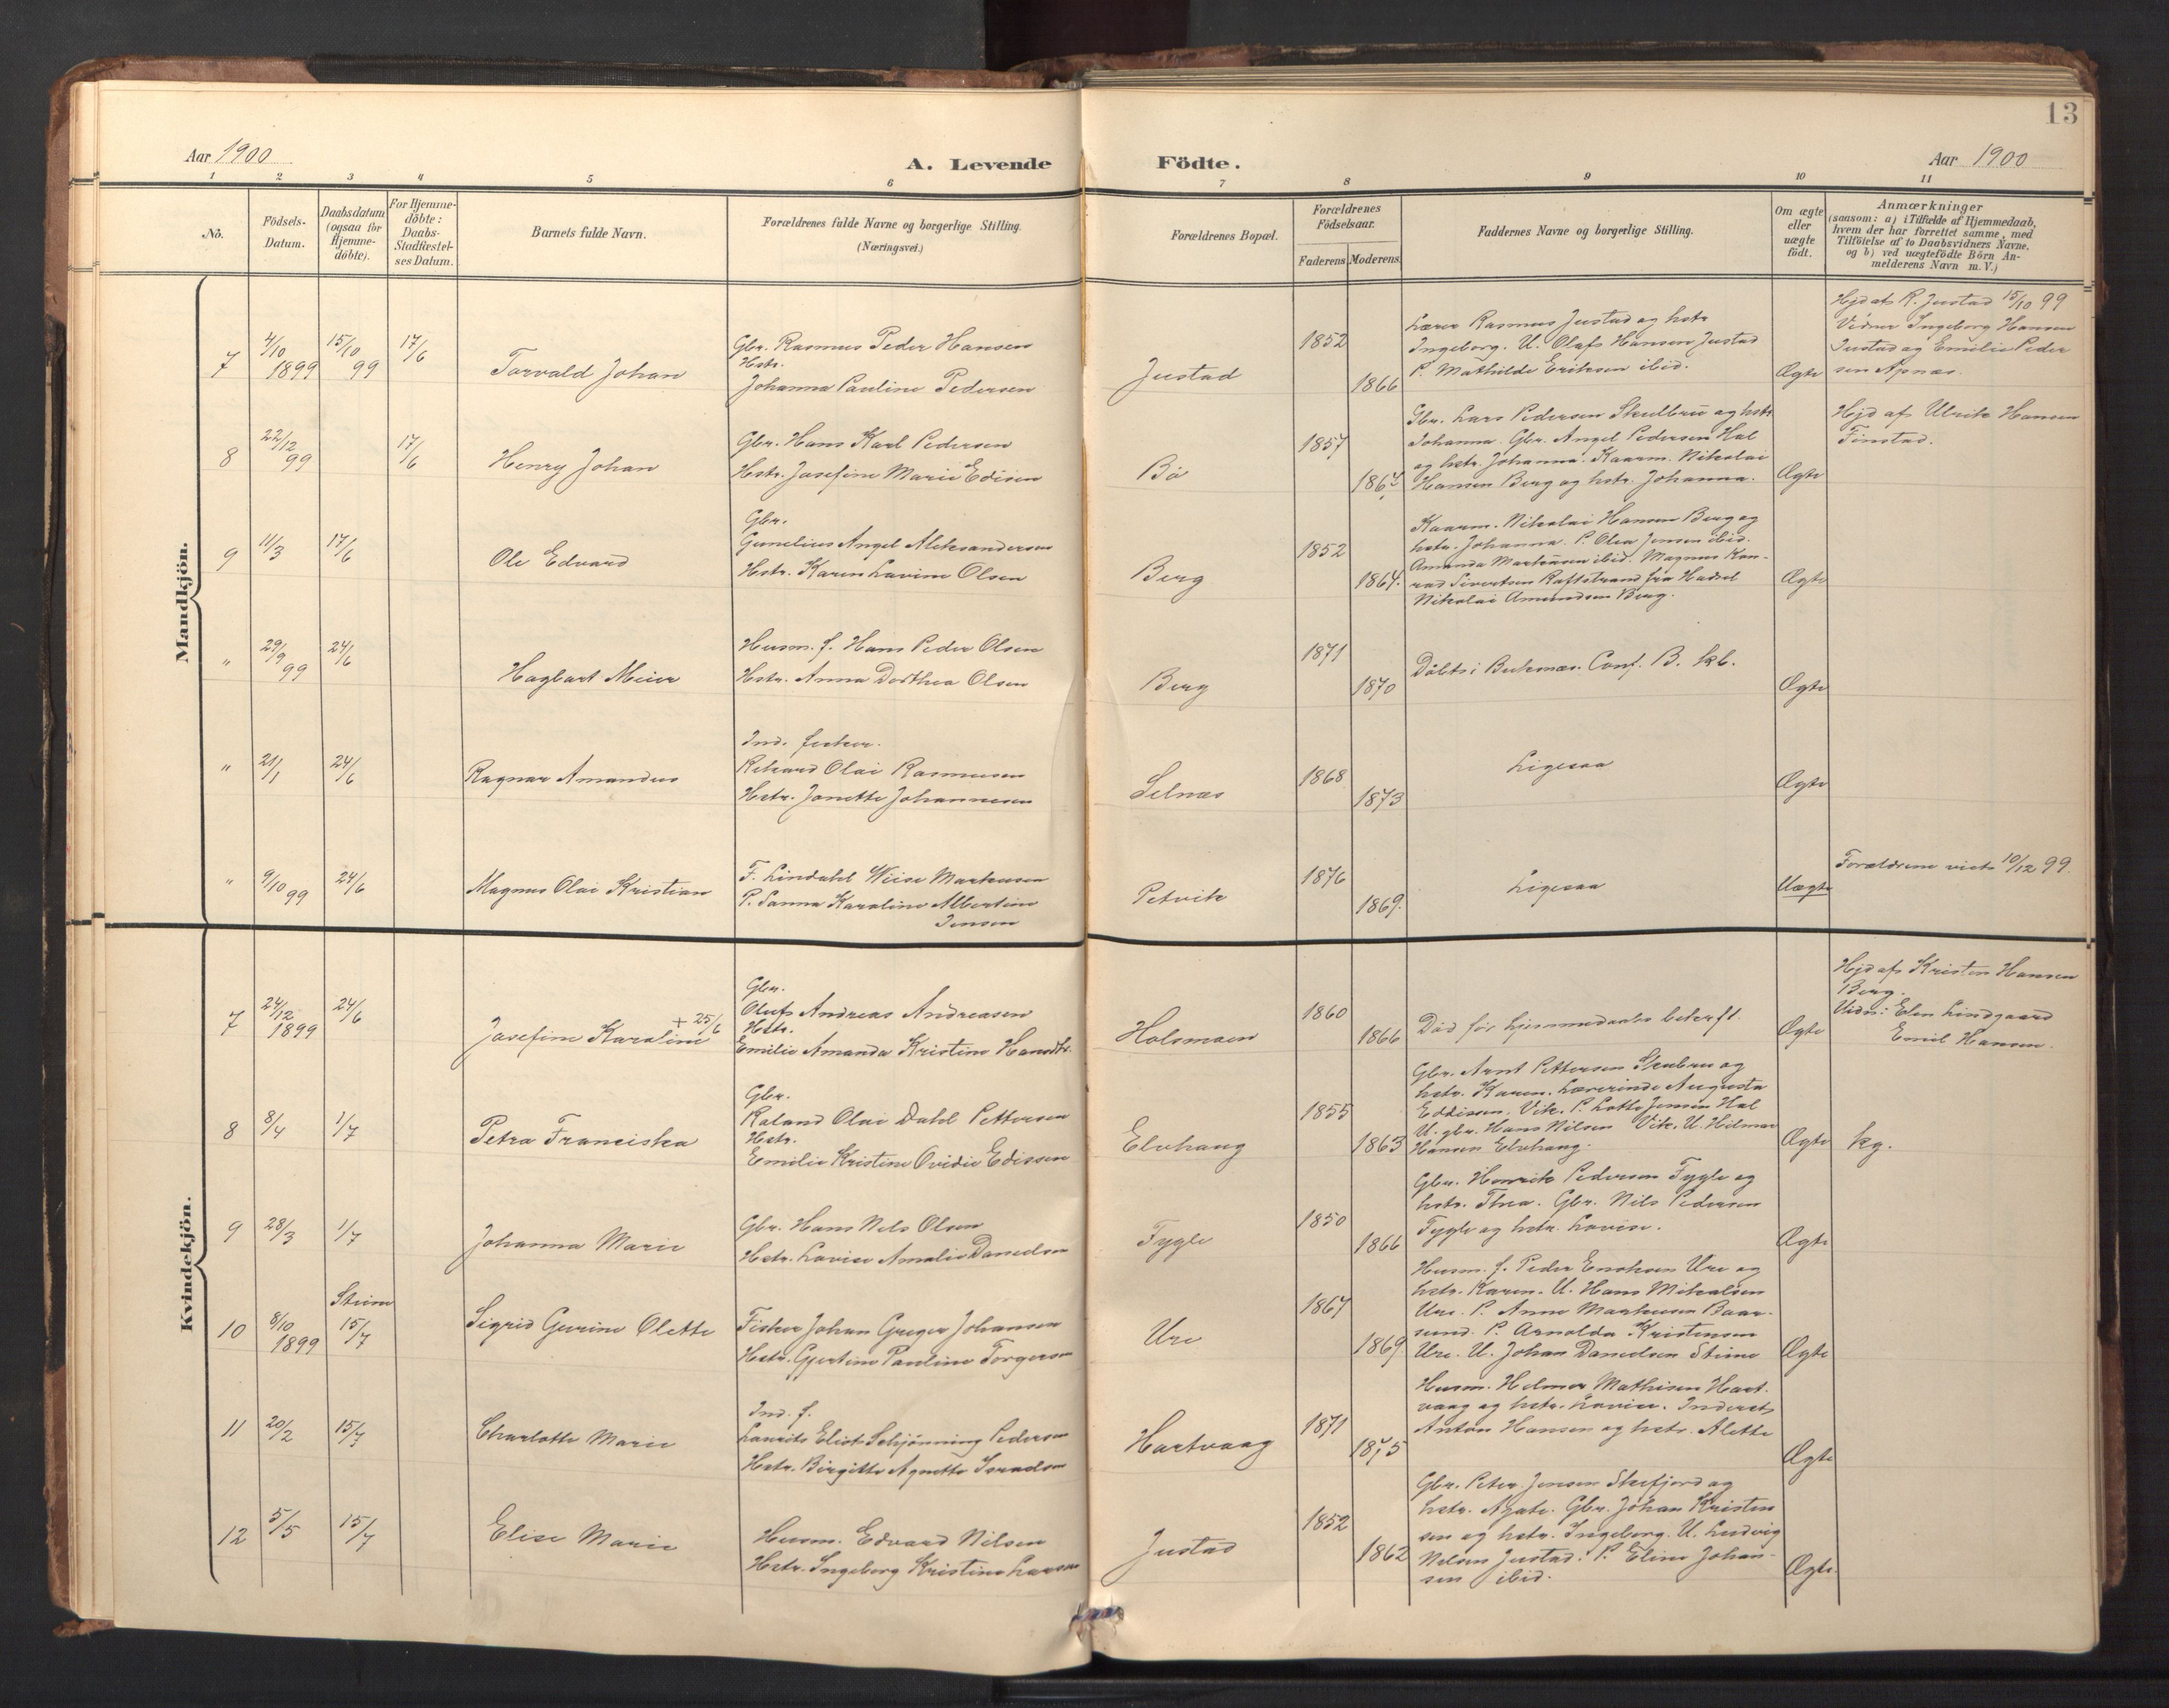 13
Aar 1900
A. Levende Födte.
Aar 1900
1 2 3 4 5 6 7 8 9 10 11
No.
Födsels-Datum.
Daabsdatum (ogsaa för Hjemme-döbte).
For Hjemme-döbte: Daabs-Stadfæstel-ses Datum.
Barnets fulde Navn.
Forældrenes fulde Navne og borgerlige Stilling.
(Næringsvei.)
Forældrenes Bopæl.
Forældrenes Födselsaar.
Faderens Moderens
Faddernes Navne og borgerlige Stilling.
Om ægte eller uægte födt.
Anmærkninger
(saasom: a) i Tilfælde af Hjemmedaab, hvem der har forrettet samme, med Tilföielse af to Daabsvidners Navne, og b) ved uægtefödte Börn Anmelderens Navn m. V.)
Mandkjön.
7 4/10 1899 15/10 99 17/6 Torvald Johan
Gbr. Rasmus Peder Hansen
Hstr.
Johanna Pauline Pedersen
Justad 1852 1866
Lærer Rasmus Justad og hstr
Ingeborg. U. Olaf Hansen Justad
P. Mathilde Eriksen ibid.
Ægte
Hjd af R. Justad 15/10 99
Vidner Ingeborg Hansen
Justad og Emilie Peder
sen Apnæs.
8 22/12 99 17/6 Henry Johan
Gbr. Hans Karl Pedersen
Hstr. Josefine Marie Edisen
Bö 1857
Gbr. Lars Pedersen Skulbru og hstr
Johanna. Gbr. Angel Pedersen Hal
og hstr. Johanna. Kaarm. Nikolai
Hansen Berg og hstr. Johanna.
Ægte
Hjd af Ulrik Hansen
Finstad.
9 11/3 17/6 Ole Edvard
Gbr.
Gunelius Angel Aleksandersen
Hstr. Karen Lavine Olsen
Berg 1852 1864.
Kaarm. Nikolai Hansen Berg og
hstr. Johanna. P. Olea Jensen ibid.
Amanda Martinsen ibid. Magnus Kon-
rad Sivertsen Raftstrand fra Hadsel
Nikolai Amundsen Berg.
Ægte
" 29/9 99 24/6 Hagbart Meier
Husm. f. Hans Peder Olsen
Hstr. Anna Dorthea Olsen
Berg 1871 1870
Döbt i Buksnæs. Conf. B. kb.
Ægte
" 21/1 24/6 Ragnar Amandus
Ind. fisker.
Rikard Olai Rasmussen
Hstr. Janette Johannesen
Selnæs 1868 1873
Ligesaa
Ægte
" 9/10 99 24/6 Magnus Olai Kristian
F. Lindahl Wiise Markussen
P. Sanna Karoline Albertine
Jensen
Petvik 1876 1869.
Ligesaa
Uægte
Forældrene viet 10/12 99.
Kvindekjön.
7 24/12 1899 24/6 Josefine Karoline + 25/6
Gbr.
Oluf Andreas Andreasen
Hstr.
Emilie Amanda Kristine Hansdtr.
Holsmoen 1860 1866
Död för hjemmedaabs bekræft.
Ægte
Hjd af Kristen Hansen
Berg.
Vidn: Elen Lindgaard
Emil Hansen.
8 8/4 1/7 Petra Franciska
Gbr.
Roland Olai Dahl Pettersen
Hstr.
Emilie Kristine Ovidie Edissen
Elvhaug 1855 1863
Gbr. Arnt Pettersen Skulbru og
hstr. Karen. Lærerinde Augusta
Eddisen, Vik. P. Lotte Jensen Hal
U. gbr. Hans Nilsen Vik. U. Hilmar
Hansen Elvhaug.
Ægte
kg.
9 28/3 1/7 Johanna Marie
Gbr. Hans Nels Olsen
Hstr. Lovise Amalie Danielsen
Fygle 1850 1866
Gbr. Henrik Pedersen Fygle og
hstr. Thea. Gbr. Nils Pedersen
Fygle og hstr. Lovise.
Ægte
10 8/10 1899 Stene 15/7 Sigrid Gurine Olette
Fisker Johan Greger Johansen
Hstr. Gjertine Pauline Torgersen
Ure 1867 1869.
Husm. f. Peder Enoksen Ure og
hstr. Karen. U. Hans Mikalsen
Ure. P. Anne Markussen Baar-
sund. P. Arnolda Kristensen
Ure. U. Johan Danielsen Stene
Ægte
11 20/2 15/7 Charlotte Marie
Ind. f.
Laurits Eliot Schjönning Pedersen
Hstr. Birgitte Agnette Israelsen
Hartvaag 1871 1875
Husm. Helmer Mathisen Hart.
vaag og hstr. Lovise. Inderst
Anton Hansen og hstr. Alette
Ægte
12 5/5 15/7 Elise Marie
Husm. Edvard Nilsen
Hstr. Ingeborg Kristine Larsen
Justad 1852 1862
Gbr. Peter Jensen Skefjord og
hstr. Agate. Gbr. Johan Kristen
sen og hstr. Ingeborg. U. Ludvig
Nilsen Justad. P. Eline Johan-
sen ibid.
Ægte.